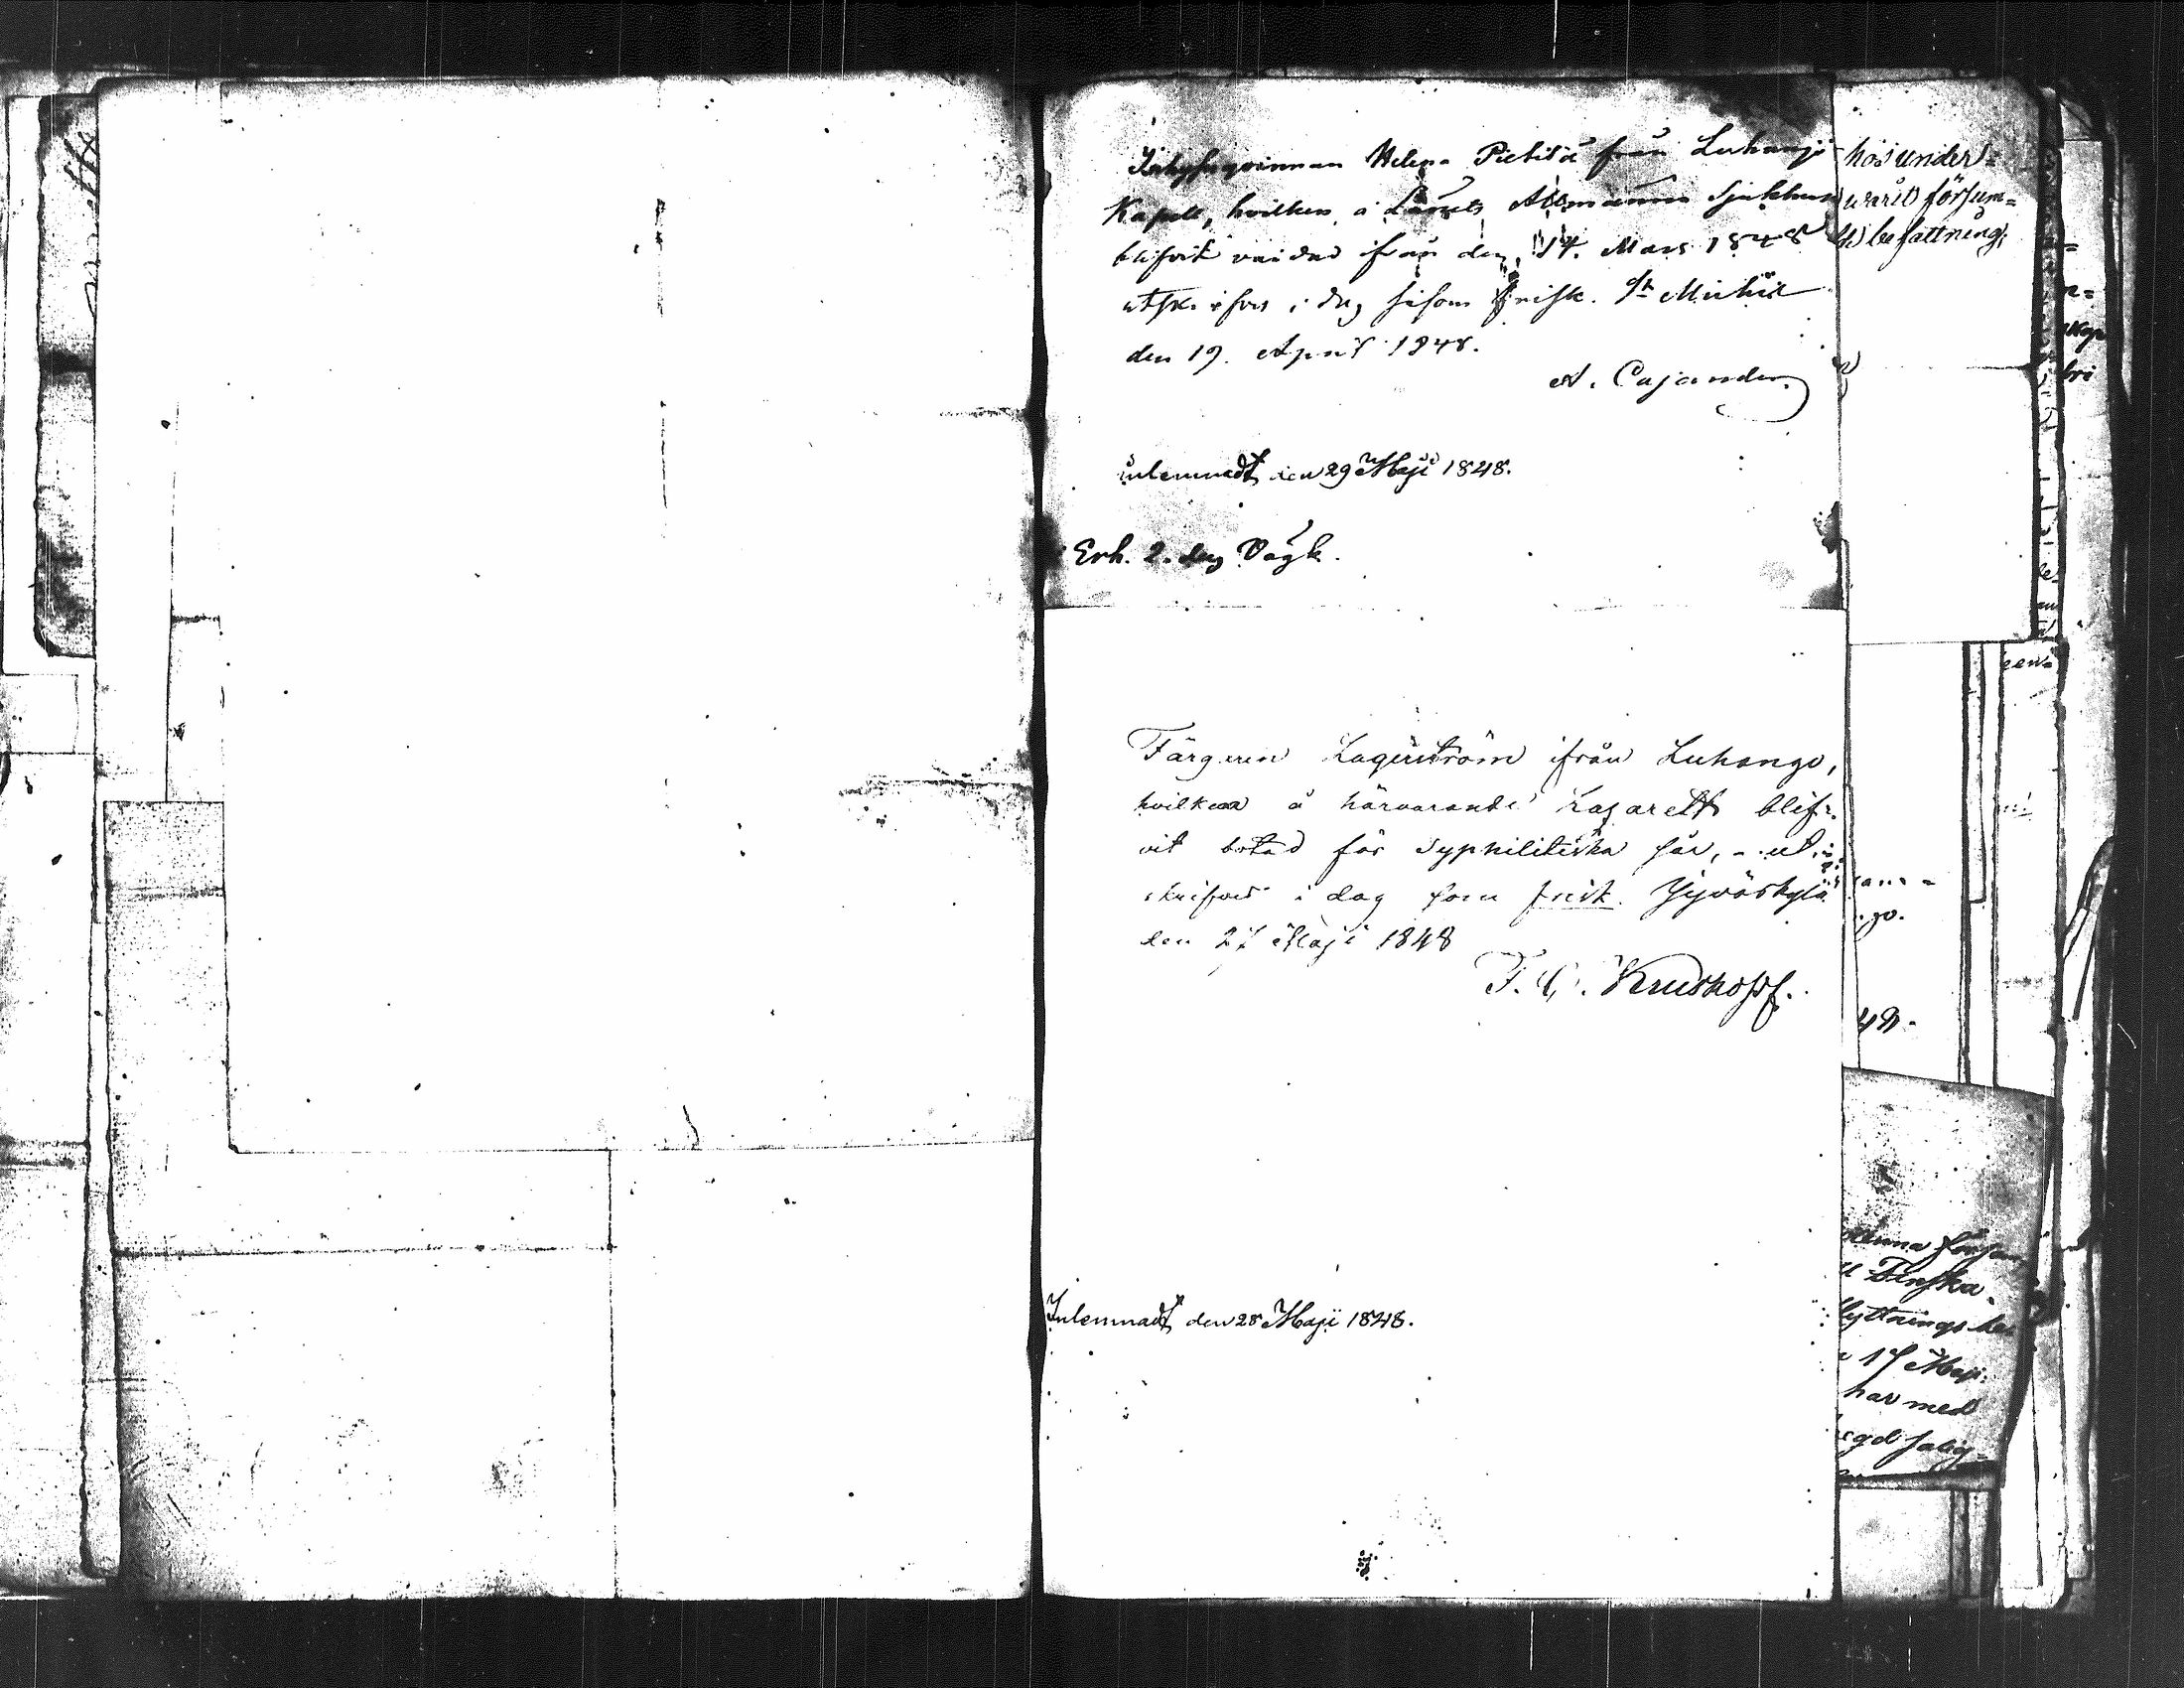 Inhysesqvinnan Helena Pietilä från Luhango
Kapell, hvilken å Länets Allmänna Sjukhus
blifvit vårdad ifrån den 14. Mars 1848
utskrifves i dag såsom frisk. St Michel
den 19. April 1848.
A. Cajander.
inlemnadt den 29 Maji 1848.
Erh. 2. dag Pingst.
Färgaren Lagerström ifrån Luhango,
hvilken å härvarande Lazarett blif-
vit botad för syphilitiska sår, - ut-
skrifves i dag som frisk. Jyväskylä
den 27 Maji 1848
F. C. Kruskopf.
Inlemnadt den 28 Maji 1848.
hos under-
warit försum-
befattning,
48.
denna försam
Finska
flyttnings be
17 Maji
har med